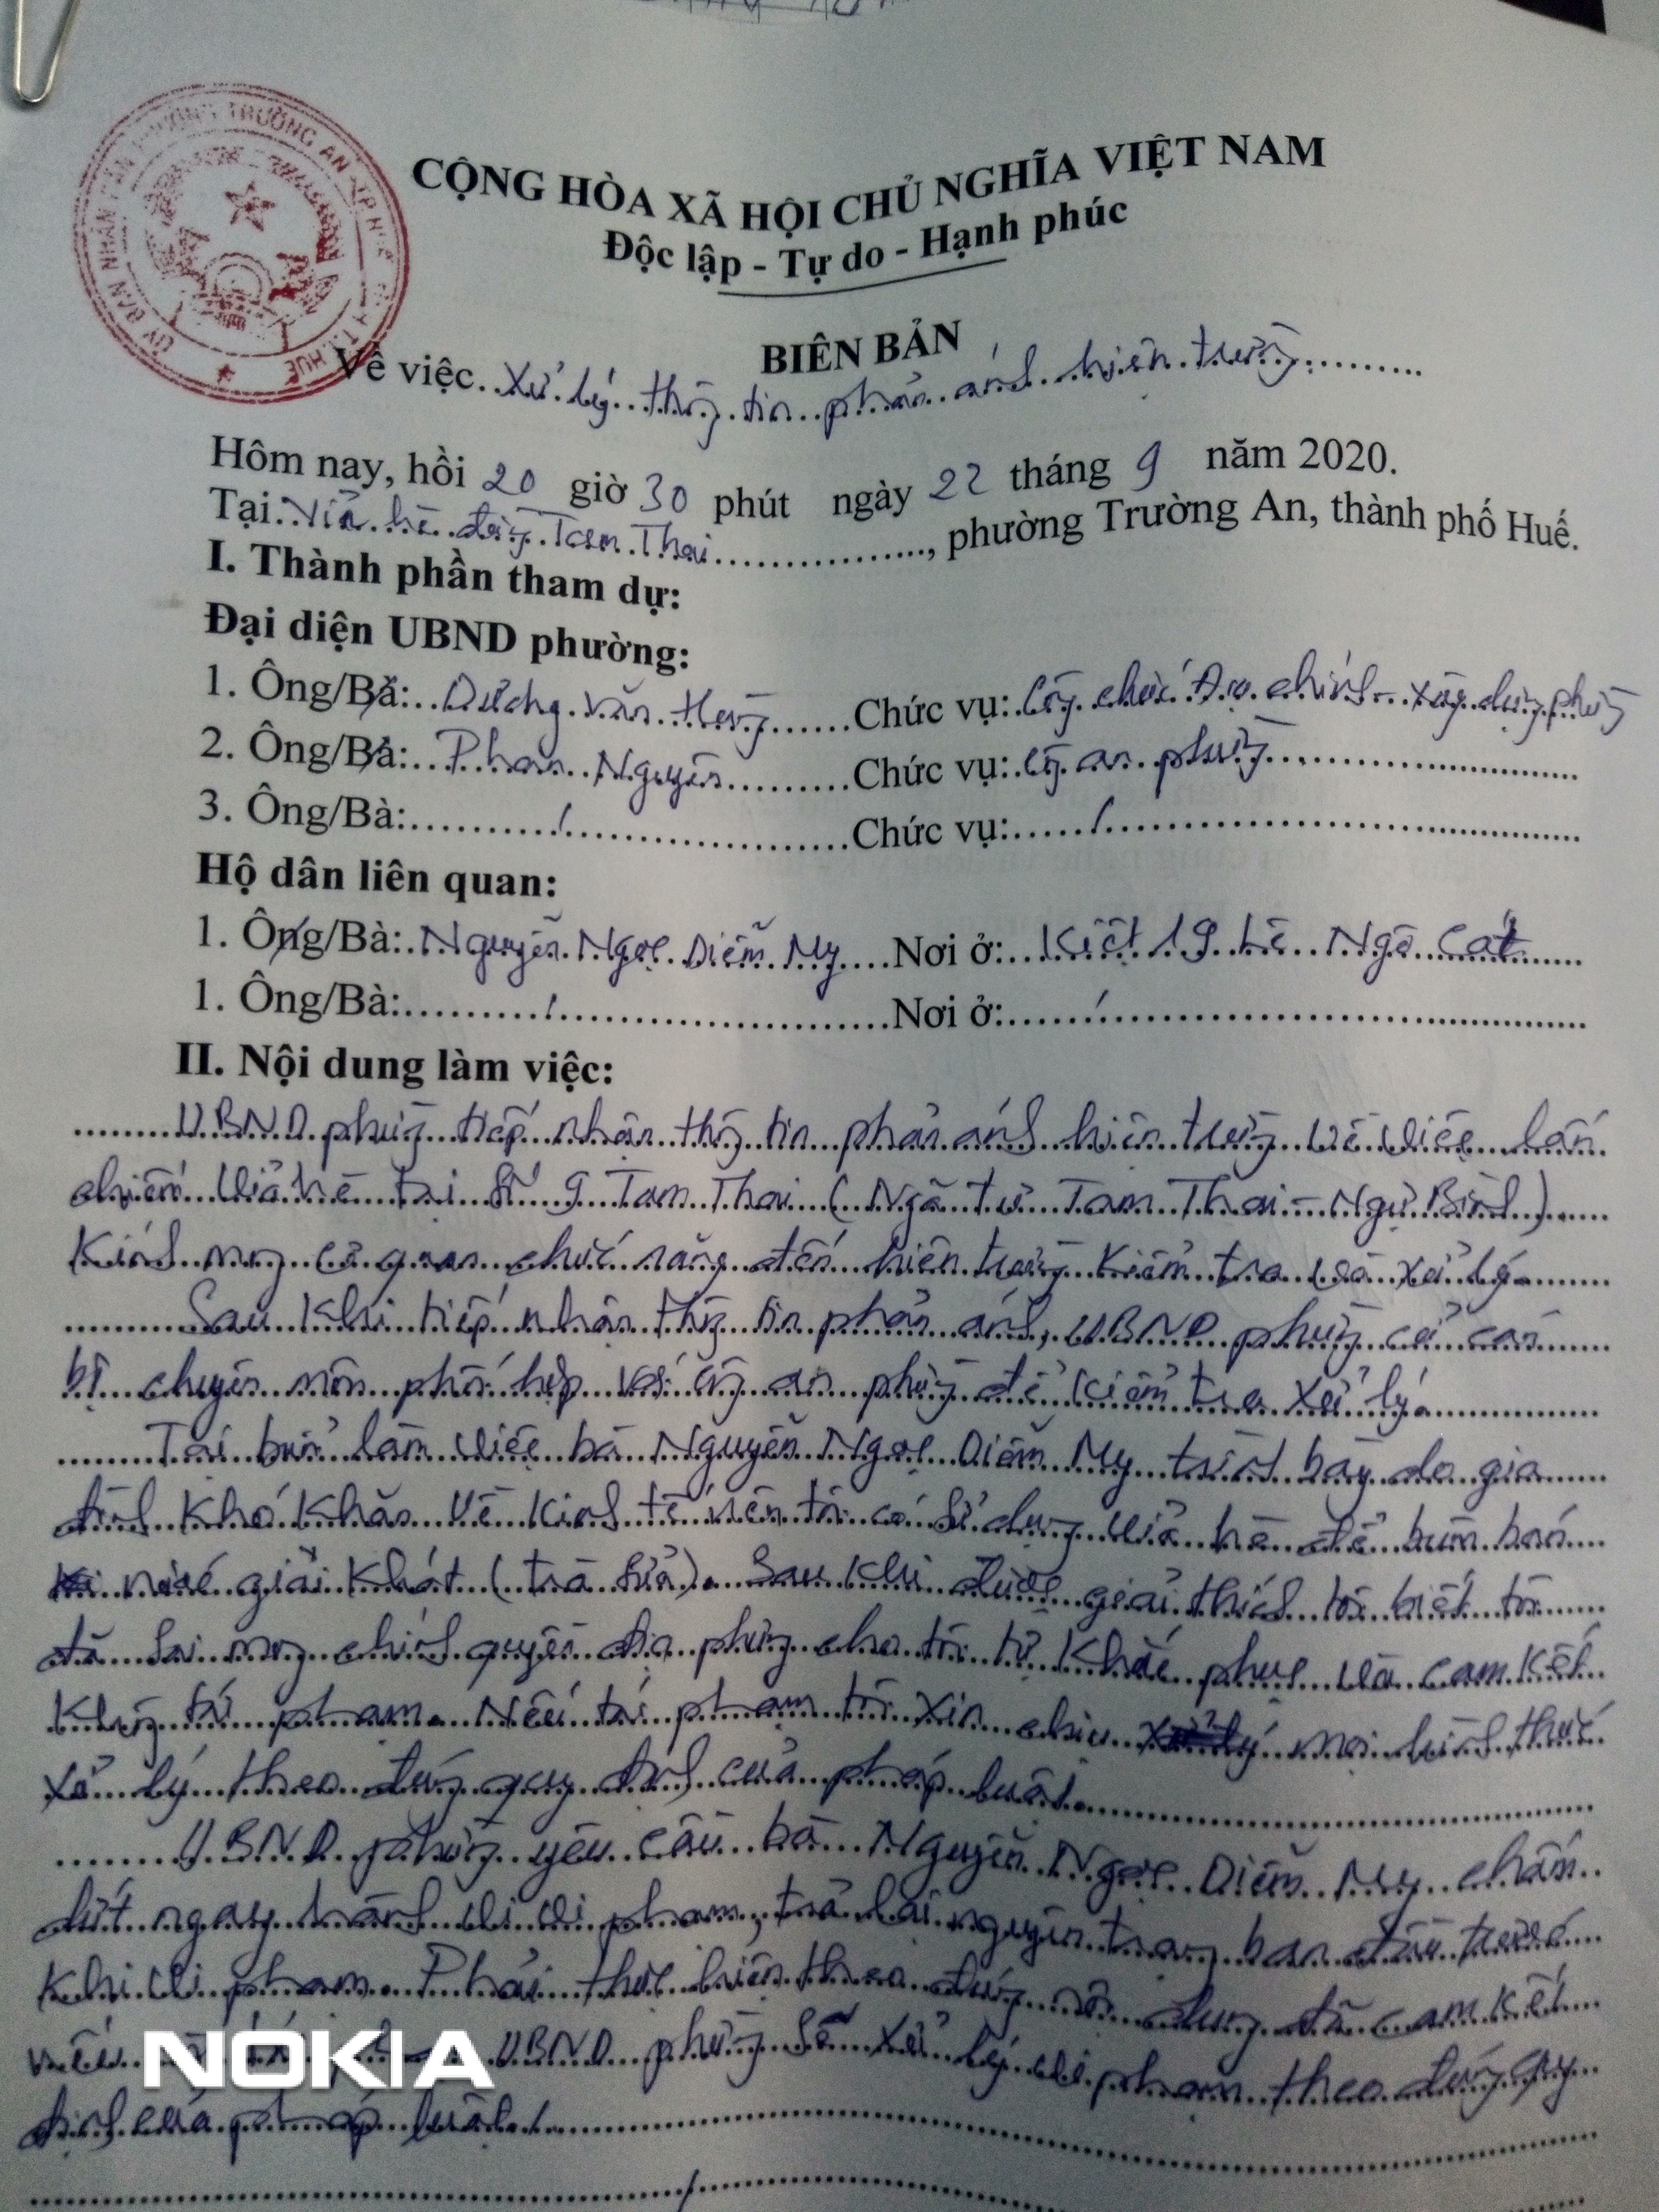 ỦY BAN NHÂN DÂN PHƯỜNG TRƯỜNG AN T.P HUẾ
CỘNG HÒA XÃ HỘI CHỦ NGHĨA VIỆT NAM
Độc lập - Tự do - Hạnh phúc
BIÊN BẢN
Về việc xử lý thông tin phản ánh hiện trường
Hôm nay, hồi 20 giờ 30 phút ngày 22 tháng 9 năm 2020.
Tại Vỉa hè đường Tam Thai, phường Trường An, thành phố Huế.
I. Thành phần tham dự:
Đại diện UBND phường:
1. Ông/Bà: Dương Văn Chức vụ: Công chức Địa chính - xây dựng phường
2. Ông/Bà: Phan Nguyên Chức vụ: Công an phường
3. Ông/Bà: / Chức vụ: /
Hộ dân liên quan:
1. Ông/Bà: Nguyễn Ngọc Diễm My Nơi ở: Kiệt 19 Lê Ngô Cát
1. Ông/Bà: / Nơi ở: /
II. Nội dung làm việc:
UBND phường tiếp nhận thông tin phản ánh hiện trường về việc lấn
chiếm vỉa hè tại số 9 Tam Thai (Ngã tư Tam Thai - Ngự Bình).
Kính mong cơ quan chức năng đến hiện trường kiểm tra và xử lý.
Sau khi tiếp nhận thông tin phản ánh, UBND phường cử cán
bộ chuyên môn phối hợp với công an phường để kiểm tra xử lý.
Tại buổi làm việc bà Nguyễn Ngọc Diễm My trình bày do gia
đình khó khăn về kinh tế nên tôi có sử dụng vỉa hè để buôn bán
nước giải khát (trà sữa). Sau khi được giải thích tôi biết tôi
đã sai mong chính quyền địa phương cho tôi tự khắc phục và cam kết
không tái phạm. Nếu tái phạm tôi xin chịu mọi hình thức
xử lý theo đúng quy định của pháp luật.
UBND phường yêu cầu bà Nguyễn Ngọc Diễm My chấm
dứt ngay hành vi vi phạm, trả lại nguyên trạng ban đầu trước
khi vi phạm. Phải thực hiện theo đúng nội dung đã cam kết
nếu UBND phường sẽ xử lý vi phạm theo đúng quy
định của pháp luật./.
NOKIA